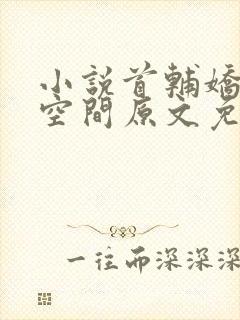 小說首輔嬌
空間原文免
一往而深深深